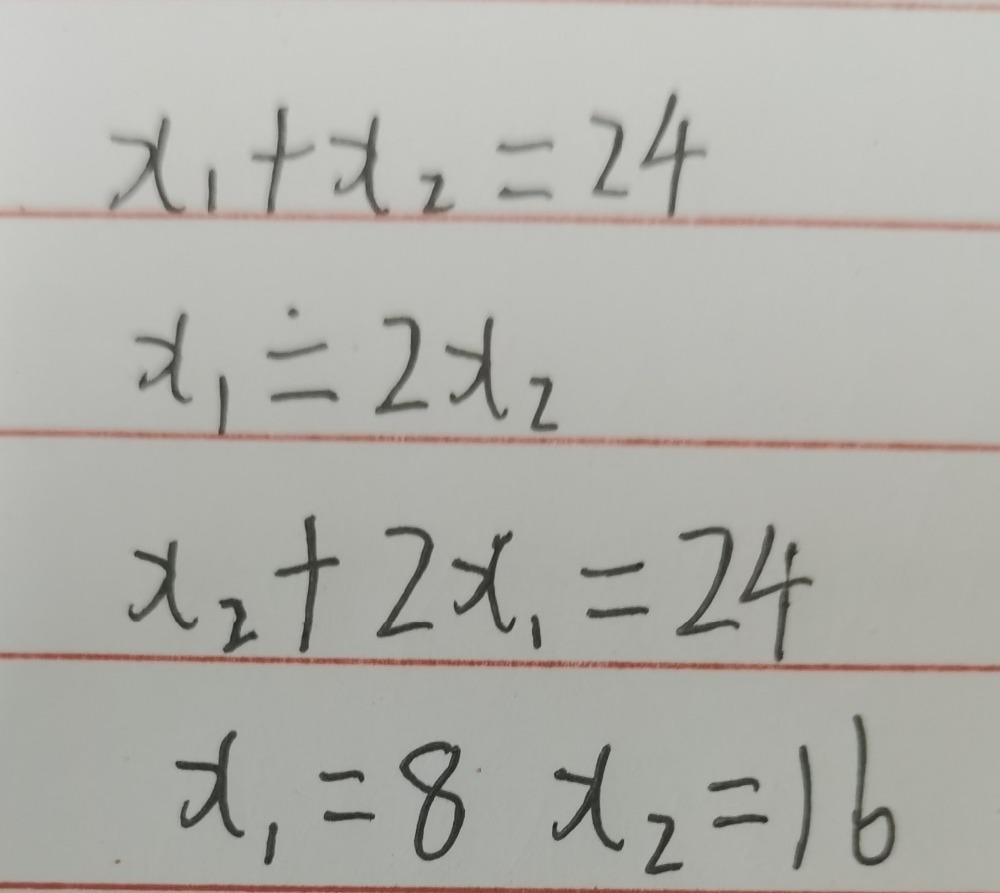 x₁+x₂=24
x₁≐2x₂
x₂+2x₁=24
x₁=8 x₂=16